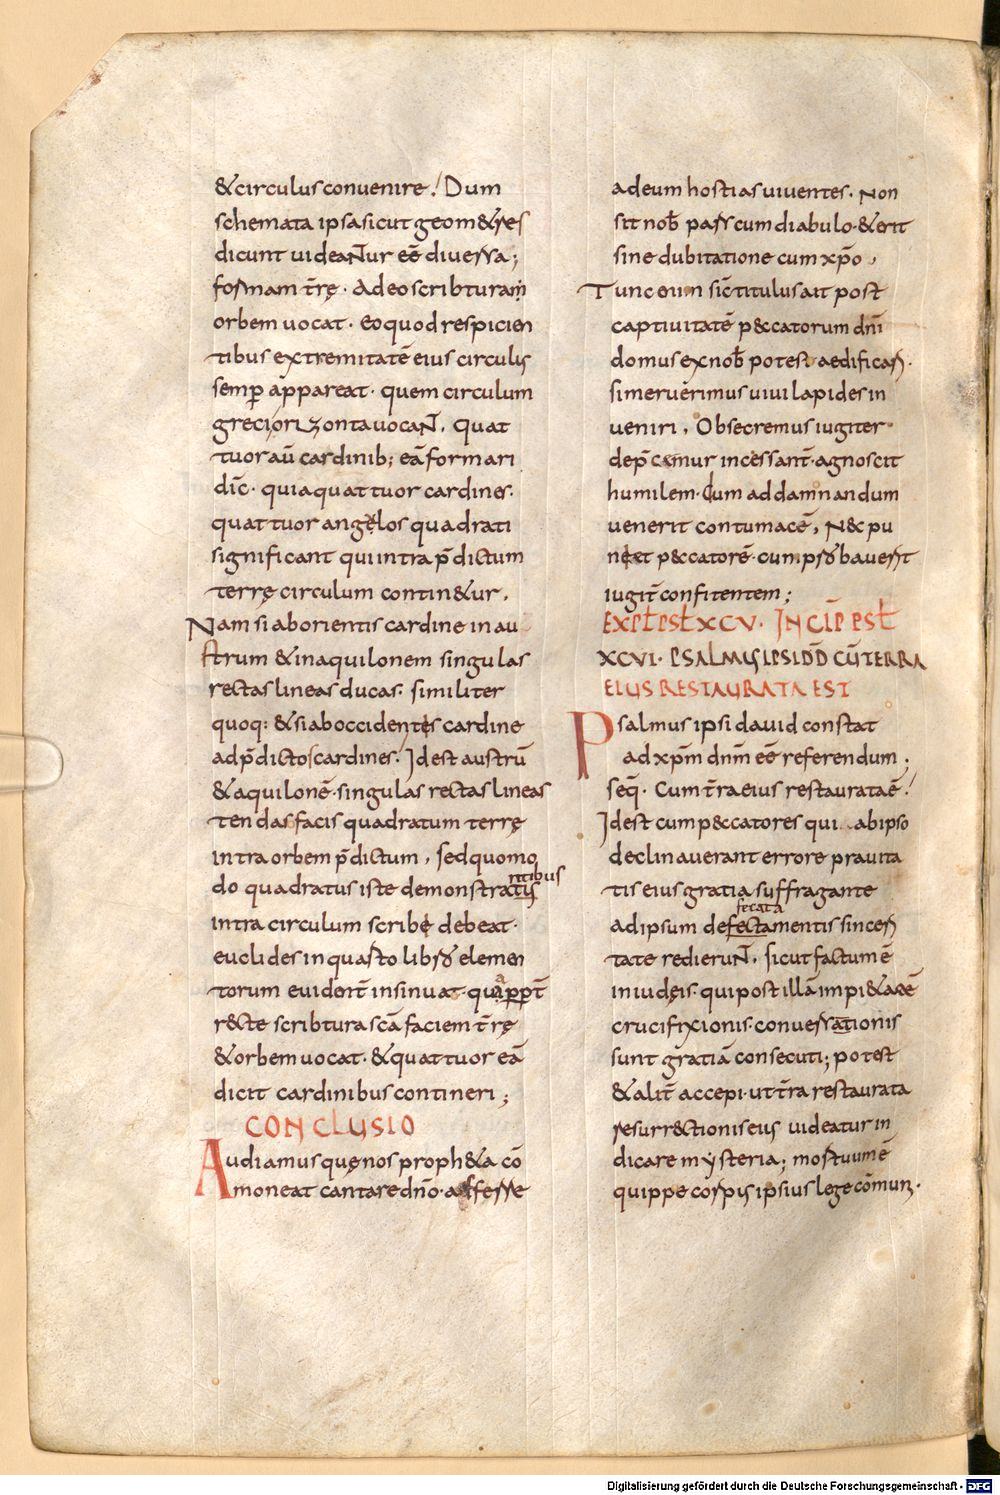 & circulus conuenire! Dum
schemata ipsa sicut geom&res
dicunt uideaNtur eē diuersa;
formam t̄rę. Adeo scribtura in
orbem uocat. eo quod respicien
tibus extremitatē eius circulis
semp̄ appareat. quem circulum
greci orizonta uocaNt. quat
tuor aū cardinib; eā formari
dic̄. quia quattuor cardines.
quattuor angelos quadrati
significant qui intra p̄dictum
terrę circulum contin&ur.
Nam si ab orientis cardine in au
strum & in aquilonem singulas
rectas lineas ducas. similiter
quoq: & si ab occidentes cardine
ad p̄dictos cardines. Id est austrū
& aquilonē. singulas rectas lineas
tendas facis quadratum terrę
intra orbem p̄dictum, sed quomo
do quadratus iste demonstratis
ritibus
intra circulum scribe debeat.
euclides in quarto libro elemen
torum euident̄ insinuat.
r&cte scribtura scā faciem t̄rę
& orbem uocat. & quattuor eā
dicit cardinibus contineri;
CONCLUSIO
Audiamus quę nos proph&a cō
moneat cantare dn̄o. afferre
ad eum hostias uiuentes. Non
sit nob̄ pars cum diabulo. & erit
sine dubitatione cum xp̄o,
Tunc enim sic̄ titulus ait post
captiuitatē p&ccatorum dn̄i
domus ex nob̄ potest aedificari.
si meruerimus uiui lapides in
ueniri, Obsecremus iugiter
dep̄cemur incessant̄. agnoscit
humilem. Cum ad damnandum
uenerit contumacē, N&c pu
niet p&ccatorē. cum pro bauerit
iugit̄ confitentem;
EXPL̄ PSL̄ XCV. INCIP̄ PSL̄
XCVI. PSALMUS IPSI DD̄ CŪ TERRA
EIUS RESTAURATA EST
Psalmus ipsi dauid constat
ad xp̄m dn̄m eē referendum;
seq̄. Cum t̄ra eius restaurata ē!
Id est cum p&ccatores qui ab ipso
declinauerant errore prauita
tis eius gratia suffragante
fecata
ad ipsum defecta mentis sinceri
tate redieruNt. sicut factum ē
in iudęis. qui post illā impi&atē
crucifixionis. conuersationis
sunt gratiā consecuti; potest
& alit̄ accepi. ut t̄ra restaurata
resurr&ctionis eius uideatur in
dicare mysteria; mortuum ē
quippe corpus ipsius lege cōmuni.
Digitalisierung gefördert durch die Deutsche Forschungsgemeinschaft - DFG